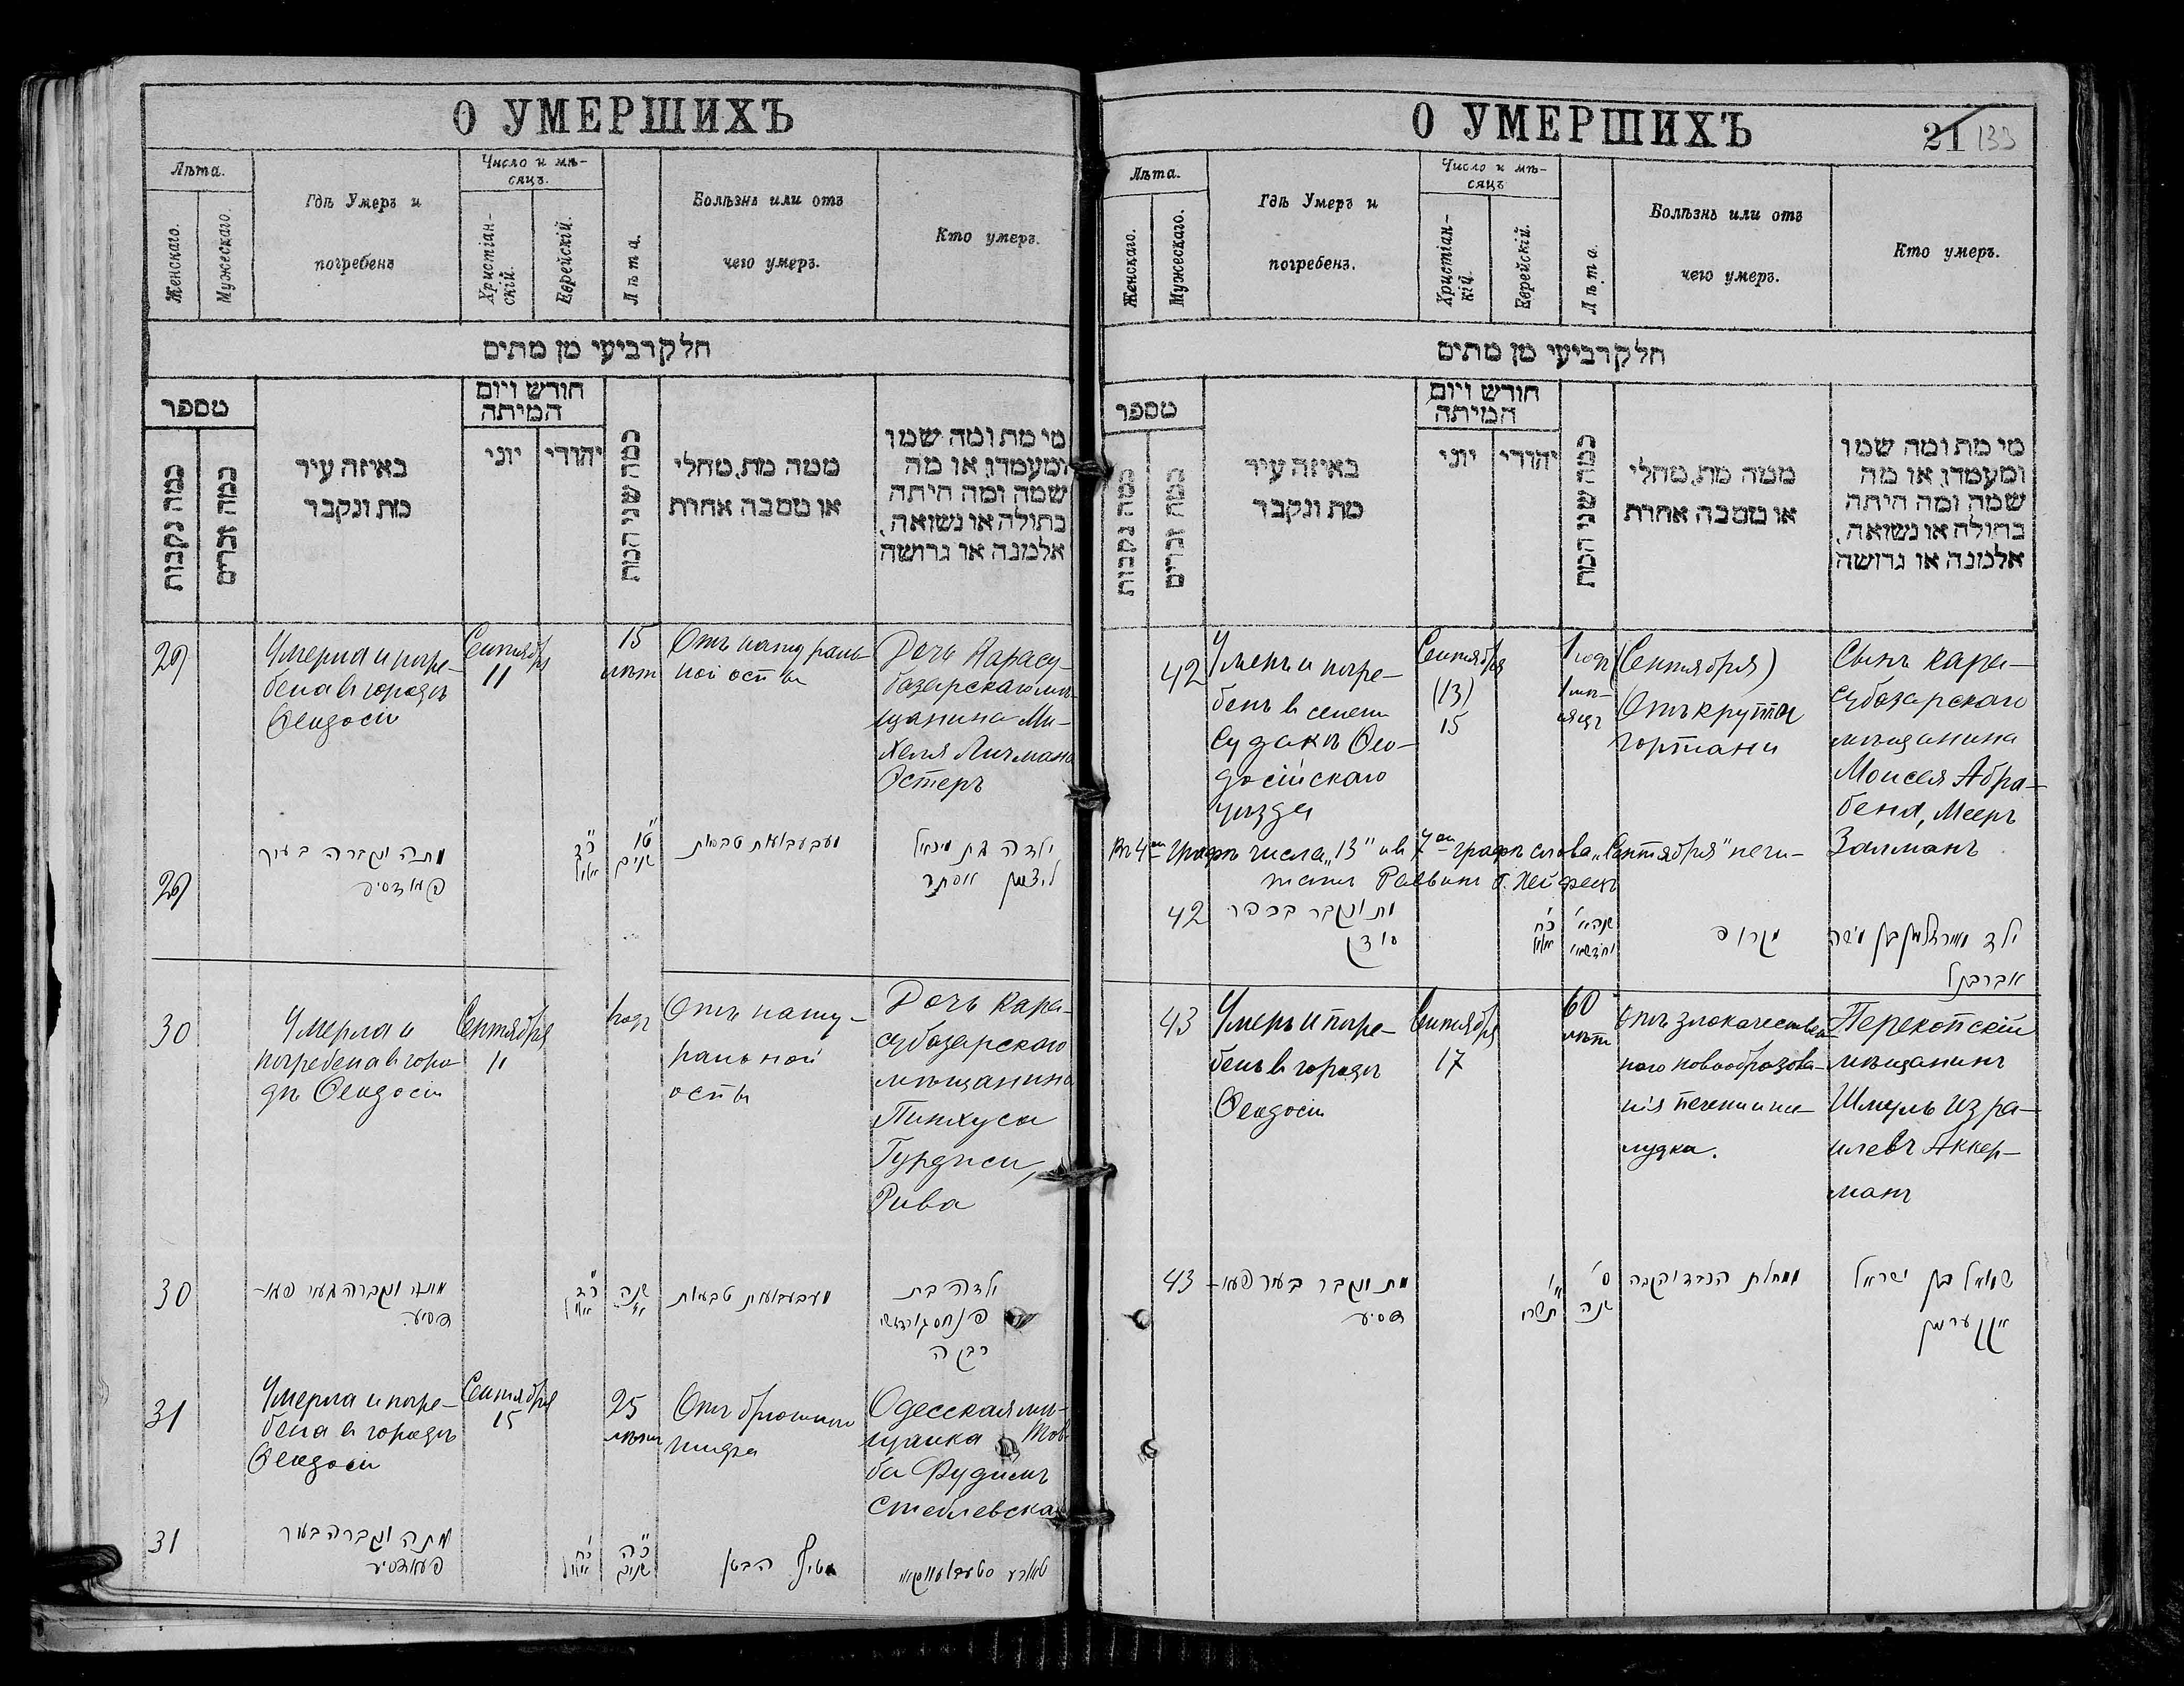 О УМЕРШИХЪ
Лѣта.
Женскаго.
Мужескаго.
Гдѣ Умеръ и
погребенъ
Число и мѣ-
сяцъ.
Христіан-
скій.
Еврейскій.
Лѣта.
Болѣзнь или отъ
чего умеръ.
Кто умеръ.
חלק רביעי מן מתים
מספר
כמה נקבות
כמה זכרים
באיזה עיר
מת ונקבר
חודש ויום
המיתה
יוני
יהודי
כמה שני המת
ממה מת, מחלי
או מסבה אחרת
מי מת ומה שמו
ומעמדו, או מה
שמה ומה היתה
בתולה או נשואה,
אלמנה או גרושה
29
Умерла и погре-
бена въ городѣ
Ѳеодосіи
Сентября
11
15
лѣтъ
Отъ натураль-
ной оспы
Дочь Карасу-
базарскаго мѣ-
щанина Ми-
хеля Личмана
Эстеръ
29
מתה ונקברה בעיר
כ״ד
אלול
ט״ו
שנים
מאבעבועות טבעיות
ילדה בת מיכאל
אסתר
30
Умерла и
погребена въ горо-
дѣ Ѳеодосіи
Сентября
11
1 годъ
Отъ нату-
ральной
оспы
Дочь Кара-
субазарскаго
мѣщанина
Пинхуса
Гурджи,
Рива
30
מתה ונקברה בעיר פעא-
דסיע.
כ״ד
אלול
שנה
מאבעבועות טבעיות
ילדה בת
פנחס גורדזשי
רבקה
31
Умерла и погре-
бена въ городѣ
Ѳеодосіи
Сентября
15
25
лѣтъ
Отъ брюшного
тифа
Одесская мѣ-
щанка Тов-
ба Фудимъ
Стеблевская
31
מתה ונקברה בעיר
פעאדסיע
כ״ח
אלול
כ״ה
שנים
טיף הבטן
О УМЕРШИХЪ
21 133
Лѣта.
Женскаго.
Мужескаго.
Гдѣ Умеръ и
погребенъ.
Число и мѣ-
сяцъ
Христіан-
кій.
Еврейскій.
Лѣта.
Болѣзнь или отъ
чего умеръ.
Кто умеръ.
חלק רביעי מן מתים
מספר
כמה נקבות
כמה זכרים
באיזה עיר
מת ונקבר
חודש ויום
המיתה
יוני
יהודי
כמה שני המת
ממה מת, מחלי
או מסבה אחרת
מי מת ומה שמו
ומעמדו, או מה
שמה ומה היתה
בתולה או נשואה,
אלמנה או גרושה
42
Умеръ и погре-
бенъ въ селеніи
Судакъ Ѳео-
досійскаго
уѣзда
Сентября
(13)
15
1 годъ
1 мѣ-
сяцъ
(Сентября)
Отъ крупа
гортани
Сынъ кара-
субазарскаго
мѣщанина
Моисея Абра-
бена, Мееръ
Залманъ
Въ 4ой графѣ числа „13" и въ 7ой графѣ слова „Сентября" нечи-
тать Раввинъ
42
מת ונקבר בכפר
סודק
כ״ח
אלול
מקרופ
ילד מאיר זלמן בן משה
אברבנל
43
Умеръ и погре-
бенъ въ городѣ
Ѳеодосіи
Сентября
17
60
лѣтъ
Отъ злокачествен-
наго новообразова-
нія печени и же-
лудка.
Перекопскій
мѣщанинъ
Шмуль Изра-
илевъ Аккер-
манъ
43
מת ונקבר בעיר פעא-
דסיע
תשרי
ס׳
שנה
ממחלת הכבד והקבה
שמואל בן ישראל
אקערמן